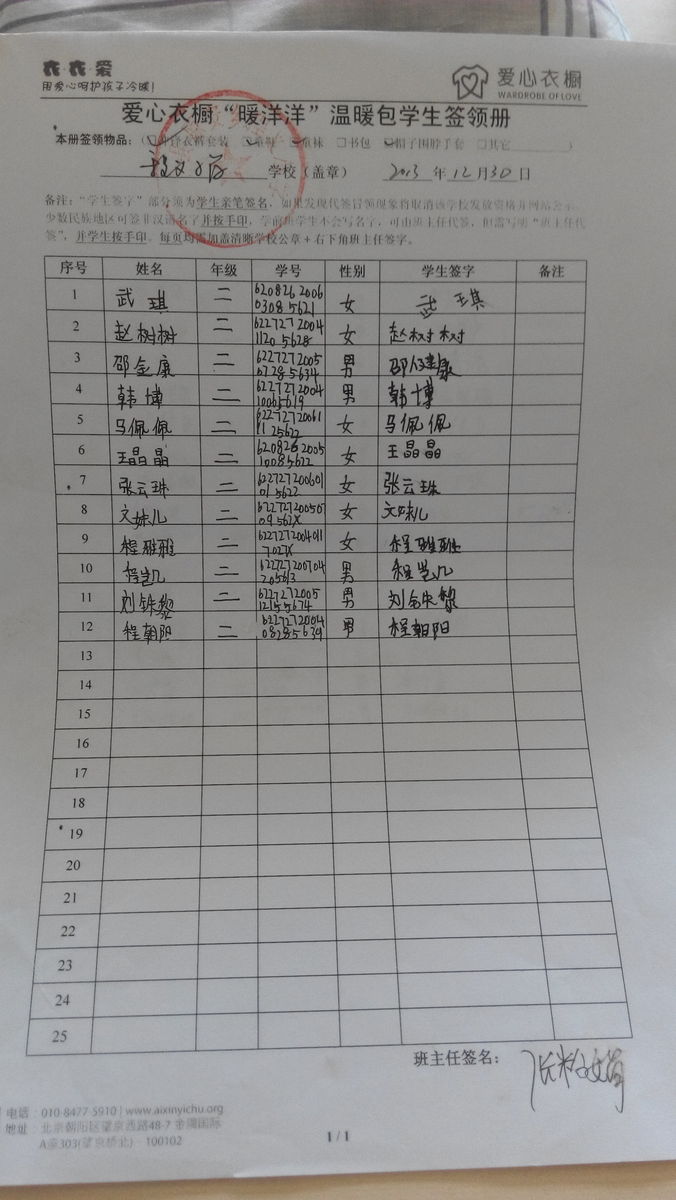 衣·衣·爱
用爱心呵护孩子冷暖!
爱心衣橱
WARDROBE OF LOVE
爱心衣橱“暖洋洋”温暖包学生签领册
本册签领物品：(☑冲锋衣裤套装 ☑童鞋 ☑童袜 □书包 ☑帽子围脖手套 □其它 )
学校（盖章） 2013 年 12 月 30 日
备注：“学生签字”部分须为学生亲笔签名，如果发现代签冒领现象将取消该学校发放资格并网站公示。
少数民族地区可签非汉语名字并按手印，学前班学生不会写名字，可由班主任代签，但需写明“班主任代
签”，并学生按手印。每页均需加盖清晰学校公章+右下角班主任签字。
序号 姓名 年级 学号 性别 学生签字 备注
1 武琪 二 620826200603085621 女 武琪
2 赵树树 二 622727200411205628 女 赵树树
3 邵金康 二 622727200507285634 男 邵健康
4 韩博 二 622727200410005619 男 韩博
5 马佩佩 二 622727200611125622 女 马佩佩
6 王晶晶 二 620826200510085622 女 王晶晶
7 张云珠 二 622727200601015622 女 张云珠
8 文妹儿 二 62272720050709562X 女 文妹儿
9 程雅雅 二 62272720040117027X 女 程雅雅
10 程凯 二 622727200704205613 男 程凯
11 刘铁黎 二 622727200512155674 男 刘铁黎
12 程朝阳 二 622727200408285639 男 程朝阳
13
14
15
16
17
18
19
20
21
22
23
24
25
班主任签名：
电话：010-8477-5910 | www.aixinyichu.org
地址：北京朝阳区望京西路48-7 金隅国际
A座303(望京桥北) · 100102
1 / 1